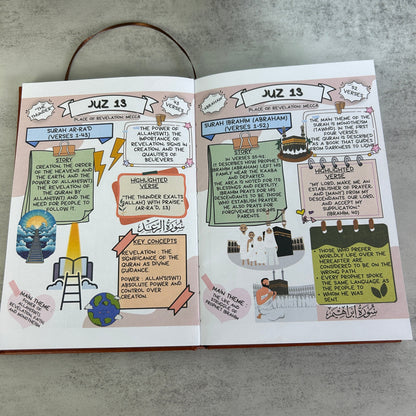 JUZ 13
"THE THUNDER"
43 VERSES
PLACE OF REVELATION: MECCA
SURAH AR-RA'D
(VERSES 1-43)
THE POWER OF
ALLAH(SWT), THE
IMPORTANCE OF
REVELATION, SIGNS
IN CREATION,
AND THE
QUALITIES OF
BELIEVERS
STORY
CREATION, THE ORDER
OF THE HEAVENS AND
THE EARTH, THE
POWER OF ALLAH(SWT),
THE REVELATION OF
THE QURAN BY
ALLAH(SWT) AND THE
NEED FOR PEOPLE TO
FOLLOW IT.
HIGHLIGHTED
VERSE
"THE THUNDER EXALTS
[ALLAH] WITH PRAISE."
(AR-RA'D, 13)
سورة الرعد
KEY CONCEPTS
REVELATION : THE
SIGNIFICANCE OF THE
QURAN AS DIVINE
GUIDANCE.
POWER : ALLAH'S(SWT)
ABSOLUTE POWER AND
CONTROL OVER
CREATION.
MAIN THEME
POWER OF
ALLAH(SWT),
REVELATION, FAITH,
AND MONOTHEISM
JUZ 13
"ABRAHAM"
52 VERSES
PLACE OF REVELATION: MECCA
SURAH IBRAHIM (ABRAHAM)
(VERSES 1-52)
THE MAIN THEME OF THE
SURAH IS MONOTHEISM
(TAWHID). IN THE FIRST
FOUR VERSES,
THE QURAN IS DESCRIBED
AS A BOOK THAT GUIDES
FROM DARKNESS TO LIGHT
STORY
IN VERSES 35-41,
IT DESCRIBES HOW PROPHET
IBRAHIM (ABRAHAM) LEFT HIS
FAMILY NEAR THE KAABA
AND DEPARTED.
THE AREA IS NOTED FOR ITS
BLESSINGS AND FERTILITY.
IBRAHIM PRAYS FOR HIS
DESCENDANTS TO BE THOSE
WHO ESTABLISH PRAYER.
HE ALSO PRAYS FOR
FORGIVENESS FOR HIS
PARENTS.
HIGHLIGHTED
VERSE
"MY LORD, MAKE ME AN
ESTABLISHER OF PRAYER,
AND [MANY] FROM MY
DESCENDANTS. OUR LORD,
AND ACCEPT MY
SUPPLICATION."
(IBRAHIM, 40)
THOSE WHO PREFER
WORLDLY LIFE OVER THE
HEREAFTER ARE
CONSIDERED TO BE ON THE
WRONG PATH.
EVERY PROPHET SPOKE
THE SAME LANGUAGE AS
THE PEOPLE TO
WHOM HE WAS
SENT.
MAIN THEME
THE LIFE AND
STRUGGLE OF
PROPHET IBRAHIM
سورة ابراهيم